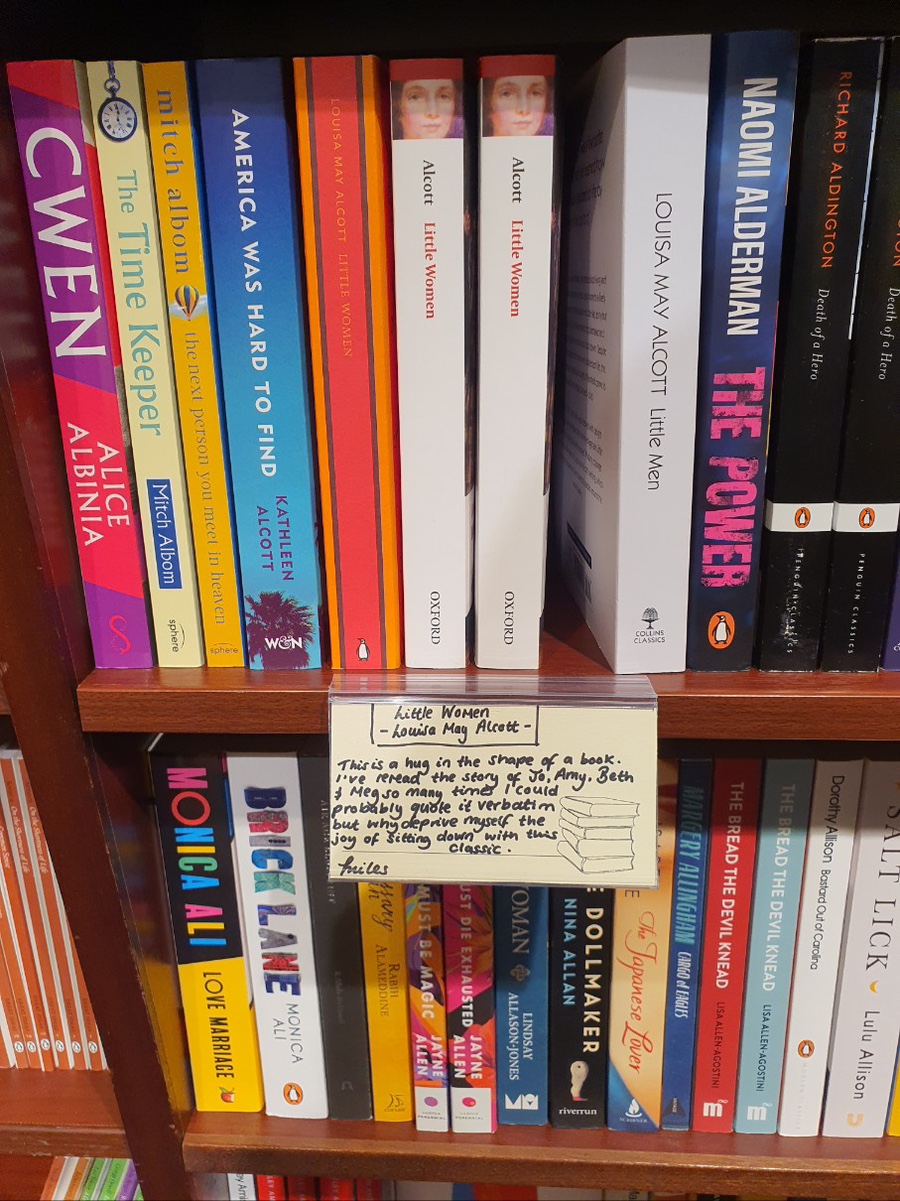 CWEN
ALICE ALBINIA
The Time Keeper
Mitch Albom
sphere
mitch albom
the next person you meet in heaven
sphere
AMERICA WAS HARD TO FIND
KATHLEEN ALCOTT
W&N
LOUISA MAY ALCOTT LITTLE WOMEN
Alcott Little Women
OXFORD
Alcott Little Women
OXFORD
LOUISA MAY ALCOTT Little Men
COLLINS CLASSICS
NAOMI ALDERMAN
THE POWER
RICHARD ALDINGTON Death of a Hero
PENGUIN CLASSICS
Death of a Hero
PENGUIN CLASSICS
Little Women
- Louisa May Alcott -
This is a hug in the shape of a book.
I've reread the story of Jo, Amy, Beth
& Meg so many times I could
probably quote it verbatim
but why deprive myself the
joy of sitting down with this
classic.
MONICA ALI
LOVE MARRIAGE
BRICK LANE
MONICA ALI
RABIH ALAMEDDINE
MUST BE MAGIC
JAYNE ALLEN
UST DIE EXHAUSTED
JAYNE ALLEN
OMAN
LINDSAY ALLASON-JONES
E DOLLMAKER
NINA ALLAN
riverrun
The Japanese Lover
MARGERY ALLINGHAM CARGO OF EAGLES
THE BREAD THE DEVIL KNEAD
LISA ALLEN-AGOSTINI
THE BREAD THE DEVIL KNEAD
LISA ALLEN-AGOSTINI
Dorothy Allison Bastard Out of Carolina
SALT LICK
Lulu Allison